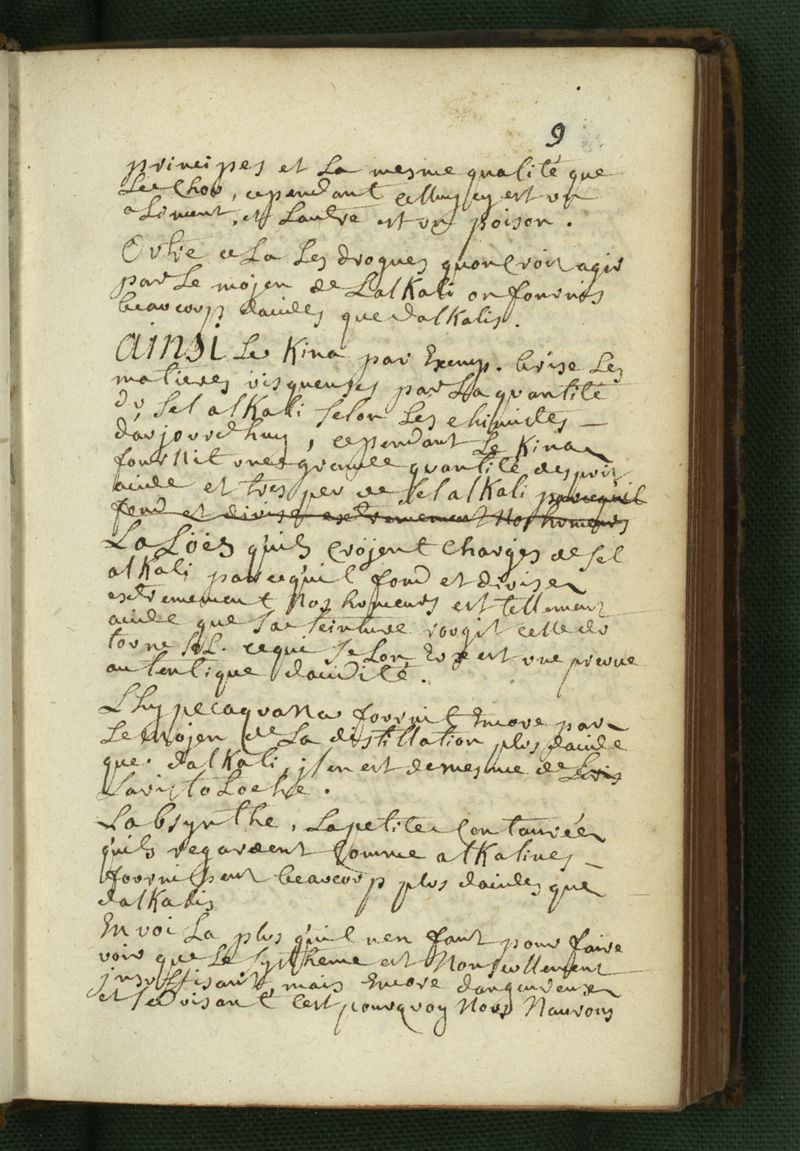 9
principes et La mesme qualité que
Le Chou, cependant celluy cy est un
aLiment, et Lautre est un poison.
Outre ceLa Les drogues quon croit agir
par Le mojen de LalKali en fournis
beaucoup dacides que dalKalis.
ainsi Le Kina par Exemp. brise Les
matieres visqueuses par La quantité
du Sel alKali Selon Les chimistes
daujourdhuy, cependant Le Kina
fournit une grande quantité desprit
acide et tres peu de Sel alKali parcequil
fond et divise extremement Nos humeurs
LaLoës quils crojent Charges de Sel
alKali parcequil fond et divise
extremement Nos humeurs est tellement
acide que Sa teinture rougit celle du
tourneSoL. cequi SeLon Eux est une preuve
autentique dacidité.
Lhypecaquana fournit Encore par
Le mojen de La distillation plus dacide
que dalKali, jl en est de mesme de
LaristoLoche.
Labsynthe, La petite Centaurée
quils regardent comme alKalines
fournissent beaucoup plus dacides que
dalKalis
En voiLa plus quil nen faut pour faire
voir que Le Systheme est Nonseullement
jnsuffisant, mais Encore dangereux
et Seduisant Cest pourquoy Nous Naurons